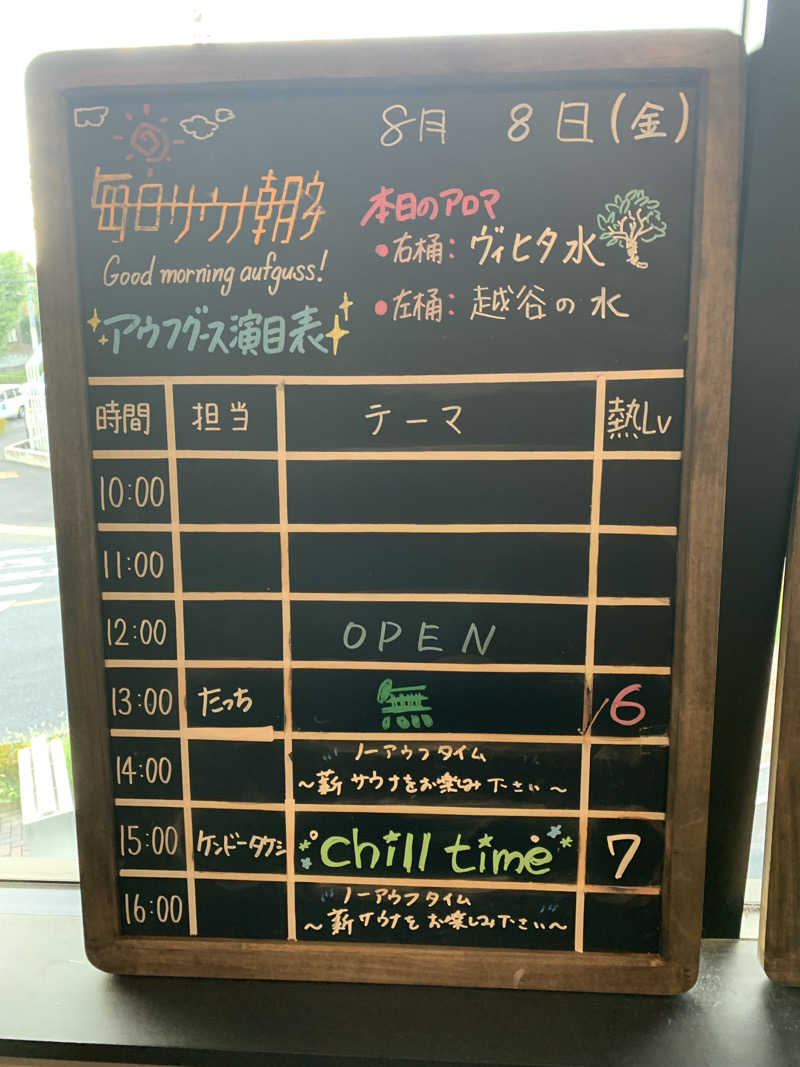 8月 8日(金)
毎日サウナ朝夕
Good morning aufguss!
アウフグース演目表
本日のアロマ
•右桶: ヴィヒタ水
•左桶: 越谷の水
時間 担当 テーマ 熱Lv
10:00
11:00
12:00 OPEN
13:00 たっち 無 6
14:00 ノーアウフタイム
〜薪サウナをお楽しみ下さい〜
15:00 ケンドータクシ chill time 7
16:00 ノーアウフタイム
〜薪サウナをお楽しみ下さい〜